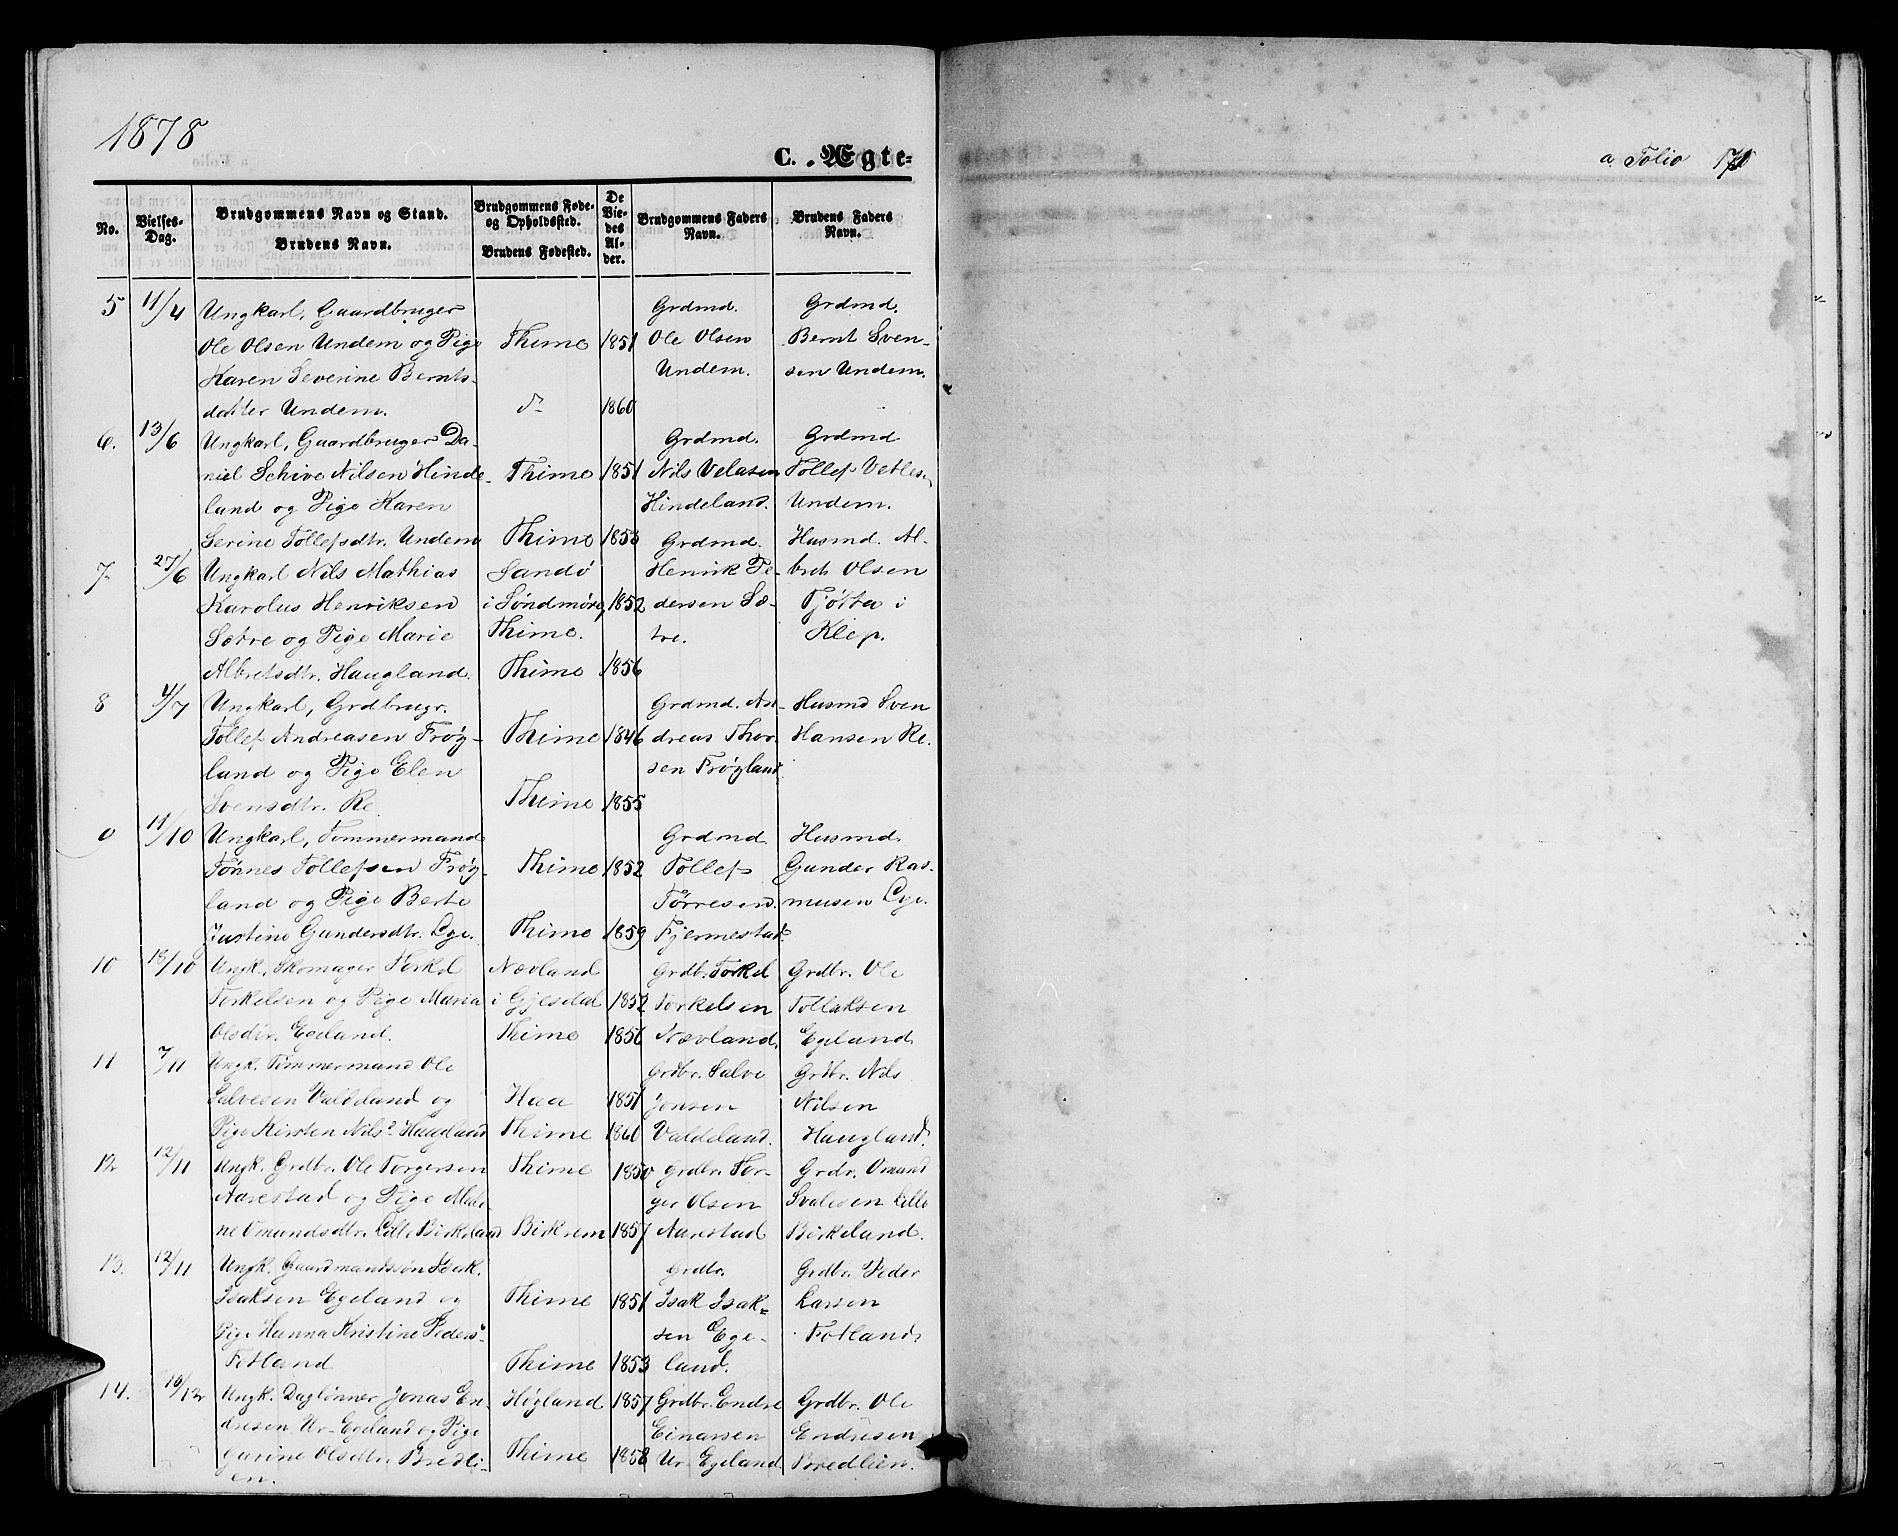 1878
C. Ægte=
a Folio 171
No.
Vielses-
Dag.
Brudgommens Navn og Stand.
Brudens Navn.
Brudgommens Føde-
og Opholdssted.
Brudens Fødested.
De
Vie-
des
Al-
der.
Brudgommens Faders
Navn.
Brudens Faders
Navn.
5 11/4 Ungkarl, Gaardbruger Grdmd. Grdmd.
Ole Olsen Undem og Pige Thime 1851 Ole Olsen Bernt Sven-
Karen Severine Bernts- Undem. sen Undem.
datter Undem. d- 1860
6. 13/6 Ungkarl, Gaardbruger Da- Grdmd. Grdmd
niel Schive Nilsen Hinde- Thime 1851 Nils Velasen Tollef Vetles-
land og Pige Karen Hindeland. Undem.
Serine Tollefsdtr. Undem Thime 1853 Grdmd. Husmd. Al-
7- 27/6 Ungkarl Nils Mathias Sandö Henrik Pe- bret Olsen
Karolus Henriksen i Söndmöre, 1852 dersen Sæ- Tjötta i
Sætre og Pige Marie Thime. tre. Klep.
Albretsdtr. Haugland. Thime 1856
8 4/7 Ungkarl, Grdbrugr. Grdmd. An- Husmd Sven
Tollef Andreasen Frøy- Thime 1846 dreas Thor- Hansen Re.
land og Pige Elen sen Frøyland.
Svensdtr. Re Thime 1855
11/10 Ungkarl, Tømmermand Grdmd. Husmd.
Tønnes Tollefsen Frøy- Thime 1852 Tollef Gunder Ras-
land og Pige Berte Tørresen. musen Lye.
Justine Gundersdtr. Lye. Thime 1859 Fjermestad.
10 18/10 Ungk. Skomager Torkel Nævland Grdbr. Torkel Grdbr. Ole
Torkelsen og Pige Maria i Gjesdal 1852 Torkelsen Tollaksen
Olsdtr. Egeland. Thime 1856 Nævland. Egeland.
11 7/11 Ungk. Tømmermand Ole Grdbr. Salve Grdbr. Nils
Salvesen Valdeland og Haa 1851 Jonsen Nilsen
Pige Kirsten Nilsd Haugland Thime 1860 Valdeland. Haugland.
12 12/11 Ungk. Grdbr. Ole Torgersen Thime 1850 Grdbr. Tor- Grdr. Omund
Aarestad og Pige Male- ger Olsen Svalesen Lille
ne Omundsdtr. Lille Birkeland Birkrem 1857 Aarestad Birkeland.
13. 12/11 Ungk. Gaardmandssøn Isak Grdbr. Grdbr. Peder
Isaksen Egeland og Thime 1851 Isak Isak= Larsen
Pig. Hanna Kristine Pedersd Fotland sen Ege- Fotland
Thime 1853 land.
14. 10/12 Ungk. Dagløner Jonas En- Høgland 1857 Grdbr. Endre Grdbr. Ole
dresen Ur-Egeland og Pige Einarsen Endresen
Gurine Olsdtr. Bredli- Thime 1858 Ur-Egeland Bredlien.
en.